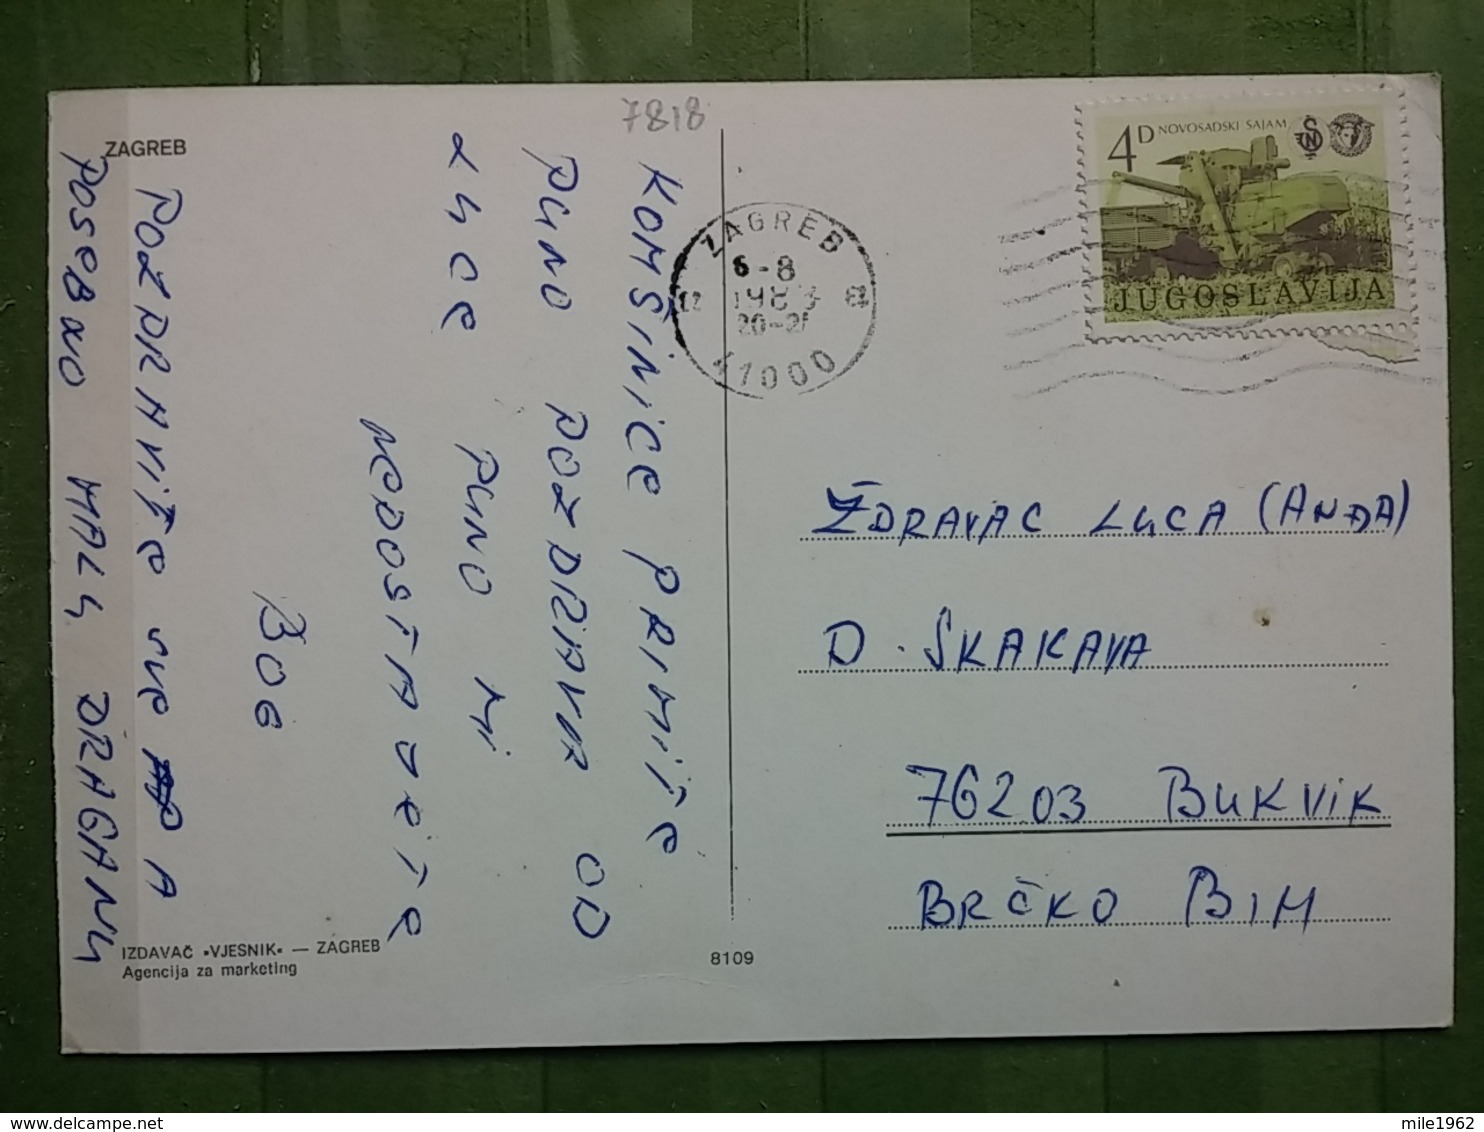 7818
ZAGREB
KOMŠINICE PRIMITE
PUNO POZDRAVA OD
LUCE PUNO MI
NEDOSTAJETE
BOG
POZDRAVITE SVE A
POSEBNO MALU DRAGANU
IZDAVAČ »VJESNIK« — ZAGREB
Agencija za marketing
8109
ZAGREB
6-8
1983
20-21
41000
4D NOVOSADSKI SAJAM
JUGOSLAVIJA
ŽDRAVAC LUCA (ANĐA)
D. ŠKAKAVA
76203 BUKVIK
BRČKO BIH
delcampe.net
mile1962